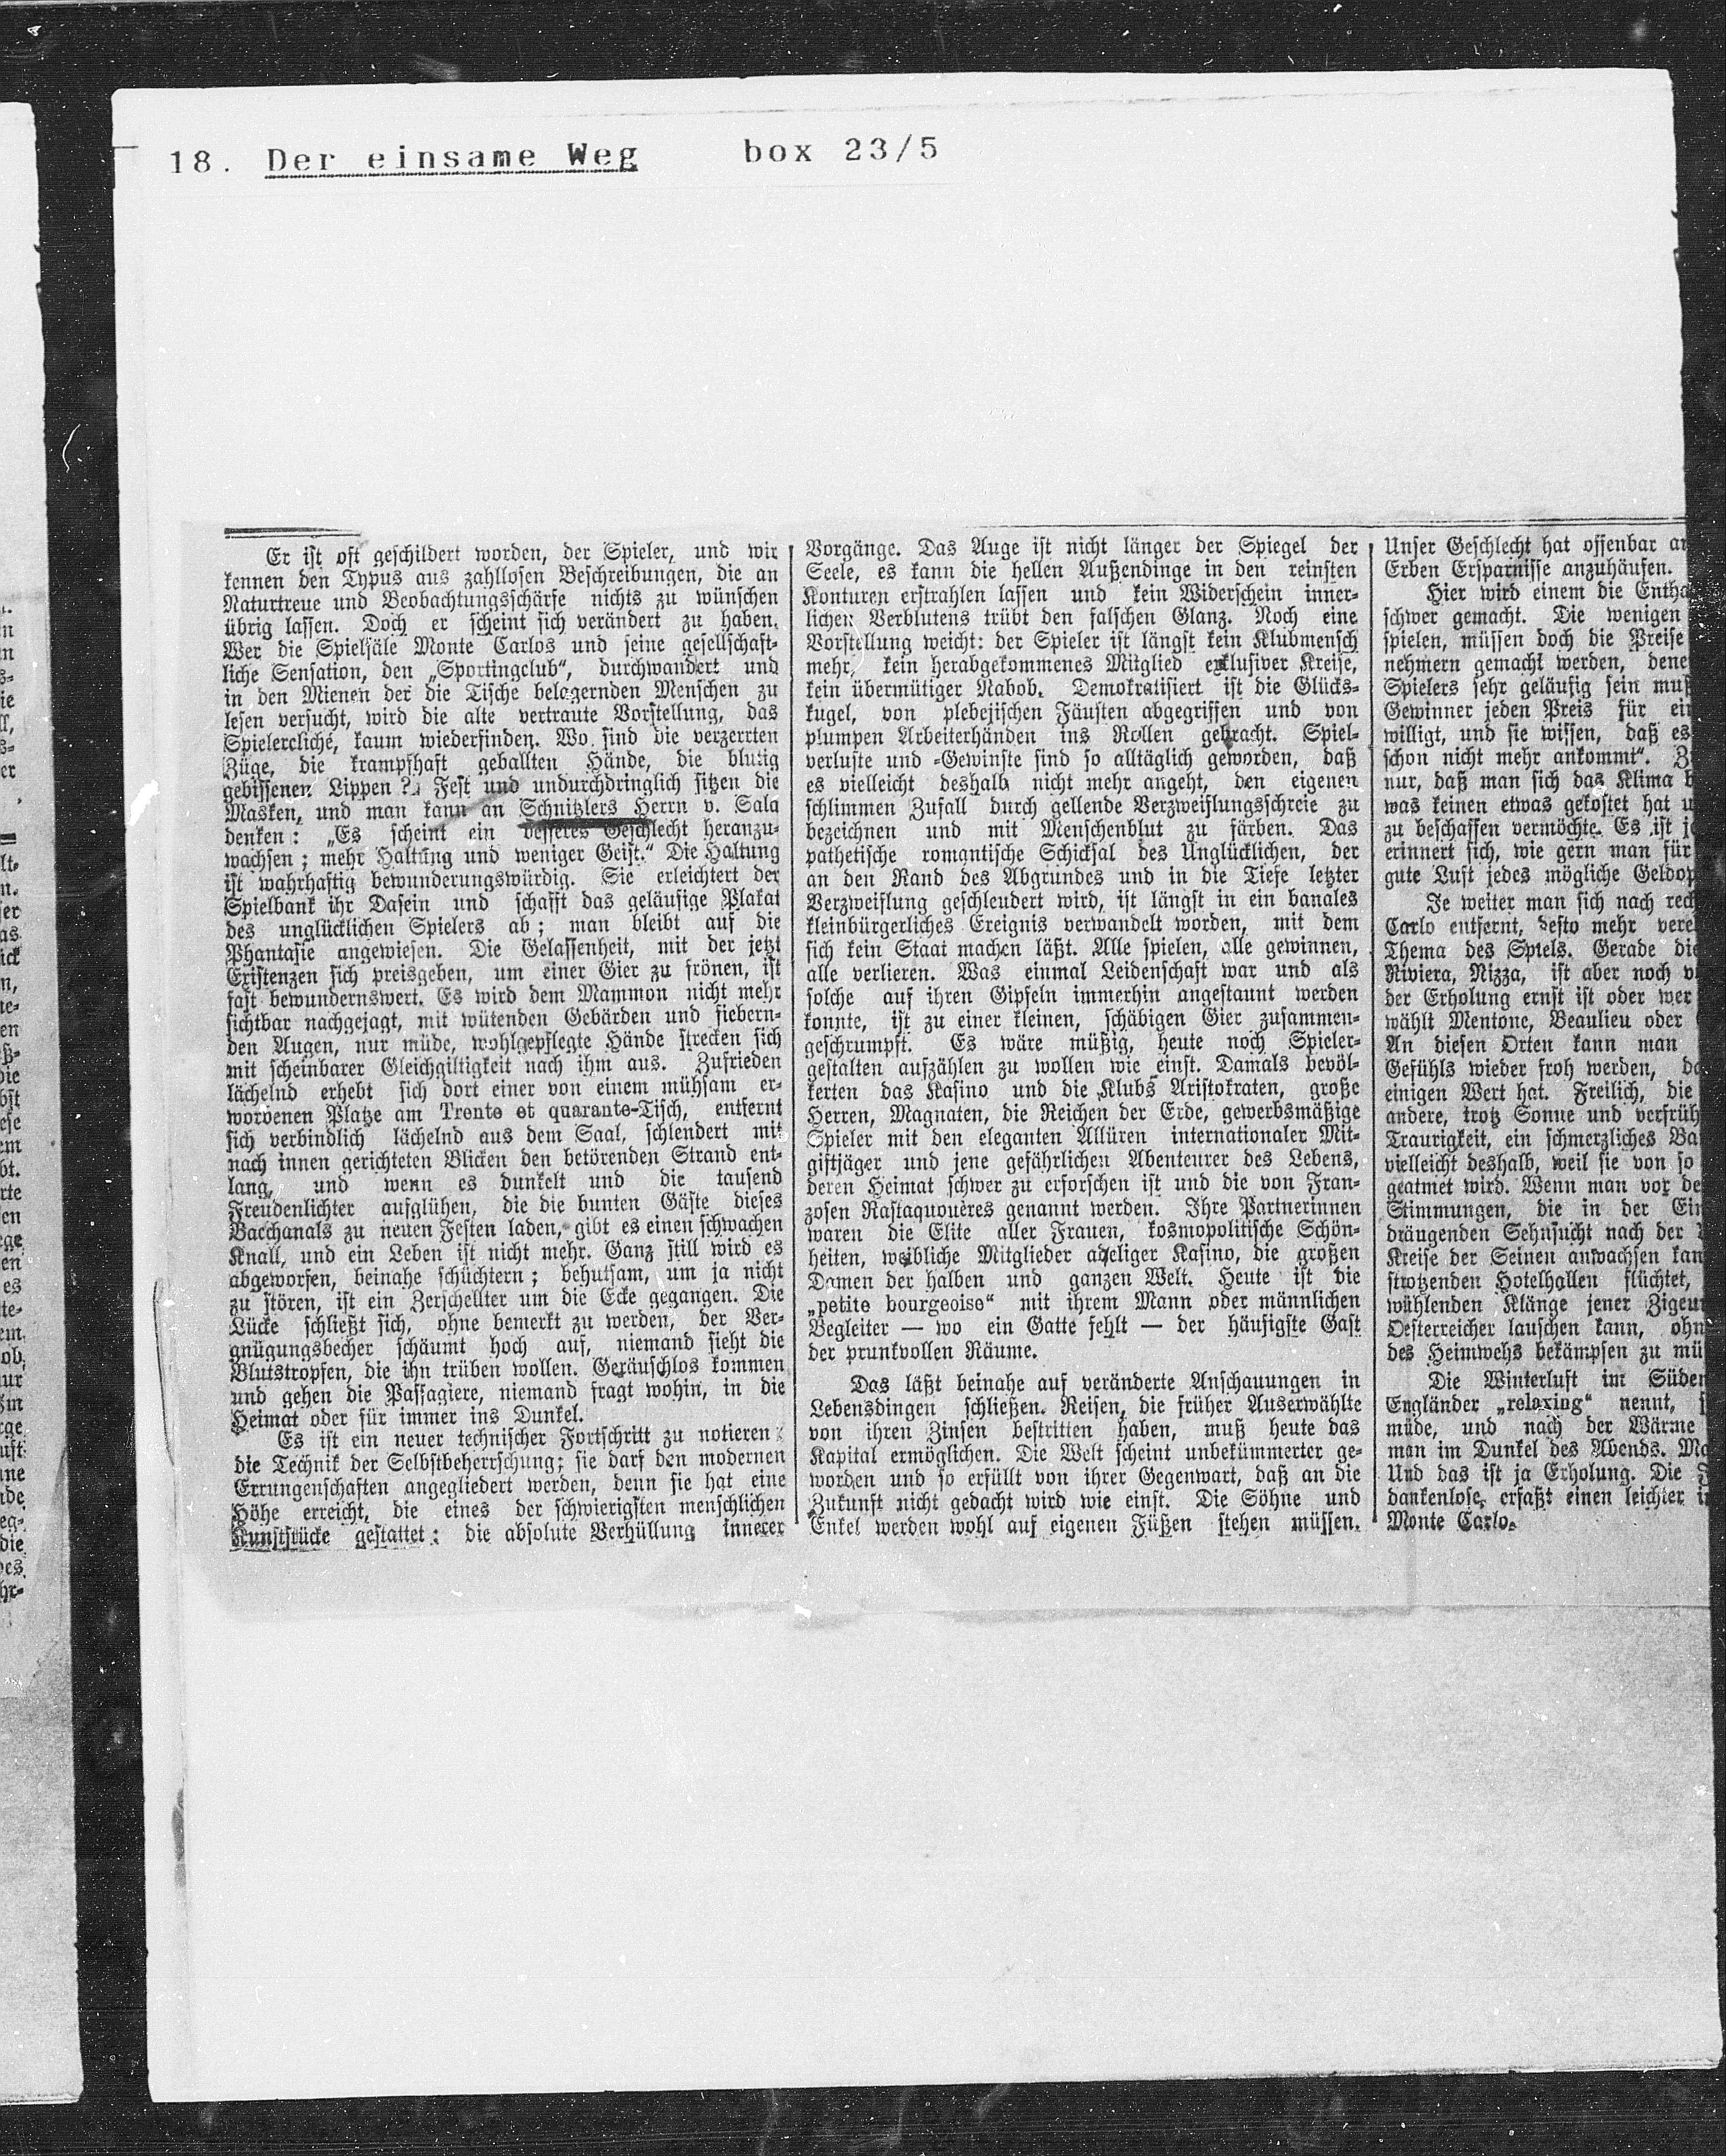 18. Der einsame Weg box 23/5
Er ist oft geschildert worden, der Spieler, und wir
kennen den Typus aus zahllosen Beschreibungen, die an
Naturtreue und Beobachtungsschärfe nichts zu wünschen
übrig lassen. Doch er scheint sich verändert zu haben.
Wer die Spielsäle Monte Carlos und seine gesellschaft-
liche Sensation, den „Sportingclub“, durchwandert und
in den Mienen der die Tische belagernden Menschen zu
lesen versucht, wird die alte vertraute Vorstellung, das
Spielercliché, kaum wiederfinden. Wo sind die verzerrten
Züge, die krampfhaft geballten Hände, die blutig
gebissenen Lippen? Fest und undurchdringlich sitzen die
Masken, und man kann an Schnitzlers Herrn v. Sala
denken: „Es scheint ein besseres Geschlecht heranzu-
wachsen; mehr Haltung und weniger Geist.“ Die Haltung
ist wahrhaftig bewunderungswürdig. Sie erleichtert der
Spielbank ihr Dasein und schafft das geläufige Plakat
des unglücklichen Spielers ab; man bleibt auf die
Phantasie angewiesen. Die Gelassenheit, mit der jetzt
Existenzen sich preisgeben, um einer Gier zu frönen, ist
fast bewundernswert. Es wird dem Mammon nicht mehr
sichtbar nachgejagt, mit wütenden Gebärden und fiebern-
den Augen, nur müde, wohlgepflegte Hände strecken sich
mit scheinbarer Gleichgiltigkeit nach ihm aus. Zufrieden
lächelnd erhebt sich dort einer von einem mühsam er-
worbenen Platze am Trente et quarante-Tisch, entfernt
sich verbindlich lächelnd aus dem Saal, schlendert mit
nach innen gerichteten Blicken den betörenden Strand ent-
lang, und wenn es dunkelt und die tausend
Freudenlichter aufglühen, die die bunten Gäste dieses
Bacchanals zu neuen Festen laden, gibt es einen schwachen
Knall, und ein Leben ist nicht mehr. Ganz still wird es
abgeworfen, beinahe schüchtern; behutsam, um ja nicht
zu stören, ist ein Zerschellter um die Ecke gegangen. Die
Lücke schließt sich, ohne bemerkt zu werden, der Ver-
gnügungsbecher schäumt hoch auf, niemand sieht die
Blutstropfen, die ihn trüben wollen. Geräuschlos kommen
und gehen die Passagiere, niemand fragt wohin, in die
Heimat oder für immer ins Dunkel.
Es ist ein neuer technischer Fortschritt zu notieren:
die Technik der Selbstbeherrschung; sie darf den modernen
Errungenschaften angegliedert werden, denn sie hat eine
Höhe erreicht, die eines der schwierigsten menschlichen
Kunststücke gestattet: die absolute Verhüllung innerer
Vorgänge. Das Auge ist nicht länger der Spiegel der
Seele, es kann die hellen Außendinge in den reinsten
Konturen erstrahlen lassen und kein Widerschein inner-
lichen Verblutens trübt den falschen Glanz. Noch eine
Vorstellung weicht: der Spieler ist längst kein Klubmensch
mehr, kein herabgekommenes Mitglied exklusiver Kreise,
kein übermütiger Nabob. Demokratisiert ist die Glücks-
kugel, von plebejischen Fäusten abgegriffen und von
plumpen Arbeiterhänden ins Rollen gebracht. Spiel-
verluste und -Gewinste sind so alltäglich geworden, daß
es vielleicht deshalb nicht mehr angeht, den eigenen
schlimmen Zufall durch gellende Verzweiflungsschreie zu
bezeichnen und mit Menschenblut zu färben. Das
pathetische romantische Schicksal des Unglücklichen, der
an den Rand des Abgrundes und in die Tiefe letzter
Verzweiflung geschleudert wird, ist längst in ein banales
kleinbürgerliches Ereignis verwandelt worden, mit dem
sich kein Staat machen läßt. Alle spielen, alle gewinnen,
alle verlieren. Was einmal Leidenschaft war und als
solche auf ihren Gipfeln immerhin angestaunt werden
konnte, ist zu einer kleinen, schäbigen Gier zusammen-
geschrumpft. Es wäre müßig, heute noch Spieler-
gestalten aufzählen zu wollen wie einst. Damals bevöl-
kerten das Kasino und die Klubs Aristokraten, große
Herren, Magnaten, die Reichen der Erde, gewerbsmäßige
Spieler mit den eleganten Allüren internationaler Mit-
giftjäger und jene gefährlichen Abenteurer des Lebens,
deren Heimat schwer zu erforschen ist und die von Fran-
zosen Rastaquouères genannt werden. Ihre Partnerinnen
waren die Elite aller Frauen, kosmopolitische Schön-
heiten, weibliche Mitglieder adeliger Kasino, die großen
Damen der halben und ganzen Welt. Heute ist die
„petite bourgeoise“ mit ihrem Mann oder männlichen
Begleiter — wo ein Gatte fehlt — der häufigste Gast
der prunkvollen Räume.
Das läßt beinahe auf veränderte Anschauungen in
Lebensdingen schließen. Reisen, die früher Auserwählte
von ihren Zinsen bestritten haben, muß heute das
Kapital ermöglichen. Die Welt scheint unbekümmerter ge-
worden und so erfüllt von ihrer Gegenwart, daß an die
Zukunft nicht gedacht wird wie einst. Die Söhne und
Enkel werden wohl auf eigenen Füßen stehen müssen.
Unser Geschlecht hat offenbar
Erben Ersparnisse anzuhäufen.
Hier wird einem die Entha
schwer gemacht. Die wenigen
spielen, müssen doch die Preise
nehmern gemacht werden, dene
Spielers sehr geläufig sein muß
Gewinner jeden Preis für ein
willigt, und sie wissen, daß es
schon nicht mehr ankommt“. Z
nur, daß man sich das Klima b
was keinen etwas gekostet hat u
zu beschaffen vermöchte. Es ist j
erinnert sich, wie gern man für
gute Lust jedes mögliche Geldop
Je weiter man sich nach rech
Carlo entfernt, desto mehr vere
Thema des Spiels. Gerade die
Riviera, Nizza, ist aber noch v
der Erholung ernst ist oder wer
wählt Mentone, Beaulieu oder
An diesen Orten kann man
Gefühls wieder froh werden, da
einigen Wert hat. Freilich, die
andere, trotz Sonne und verfrüh
Traurigkeit, ein schmerzliches Ba
vielleicht deshalb, weil sie von so
geatmet wird. Wenn man vor de
Stimmungen, die in der Ein
drängenden Sehnsucht nach der
Kreise der Seinen anwachsen kan
strotzenden Hotelhallen flüchtet,
wühlenden Klänge jener Zigeu
Oesterreicher lauschen kann, ohn
des Heimwehs bekämpfen zu mü
Die Winterluft im Süden
Engländer „relaxing“ nennt,
müde, und nach der Wärme
man im Dunkel des Abends. Ma
Und das ist ja Erholung. Die
dankenlose, erfaßt einen leichter i
Monte Carlo.